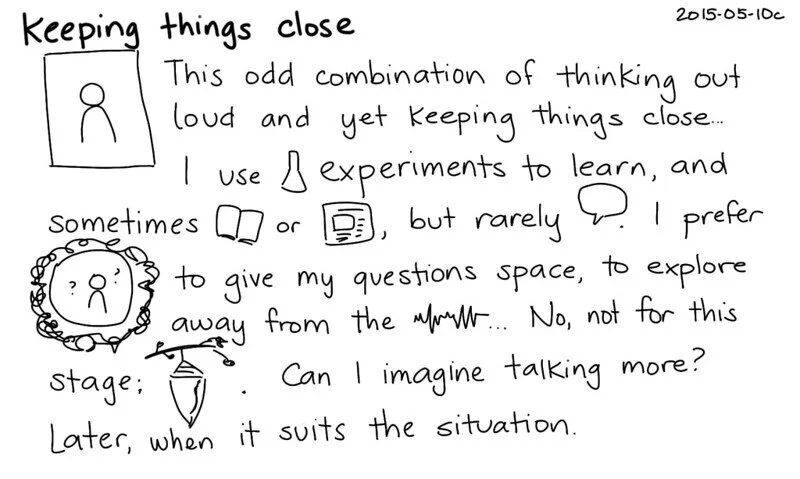 2015-05-10c
Keeping things close
This odd combination of thinking out
loud and yet keeping things close...
I use experiments to learn, and
sometimes or , but rarely . I prefer
? ?
to give my questions space, to explore
away from the ... No, not for this
stage; . Can I imagine talking more?
Later, when it suits the situation.